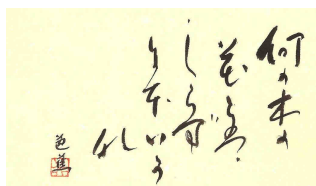 何の木の
花とは
しらず
にほひか
な
芭蕉